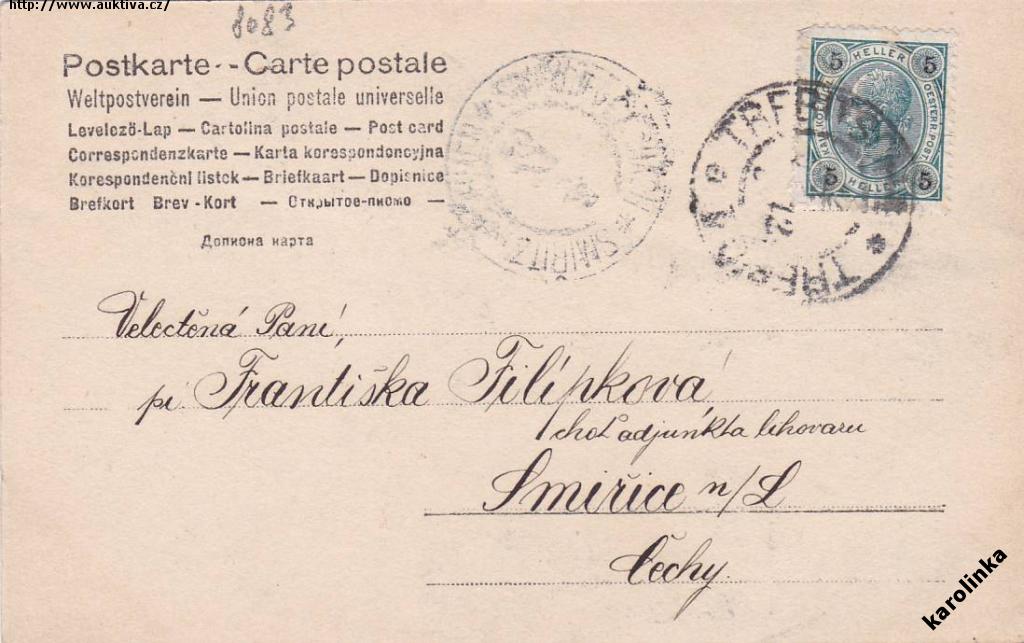 http://www.auktiva.cz/
8083
Postkarte - - Carte postale
Weltpostverein — Union postale universelle
Levelező-Lap — Cartolina postale — Post card
Correspondenzkarte — Karta korespondencyjna
Korespondenční lístek — Briefkaart — Dopisnice
Brefkort Brev-Kort — Открытое-письмо —
Дописна карта
5 HELLER 5
OESTERR. POST.
5 HELLER 5
TREBITSCH
* SMIŘITZ
Velectěná Paní,
pí. Františka Filípková
choť adjunkta lihovaru
Smiřice n/L
Čechy.
karolinka